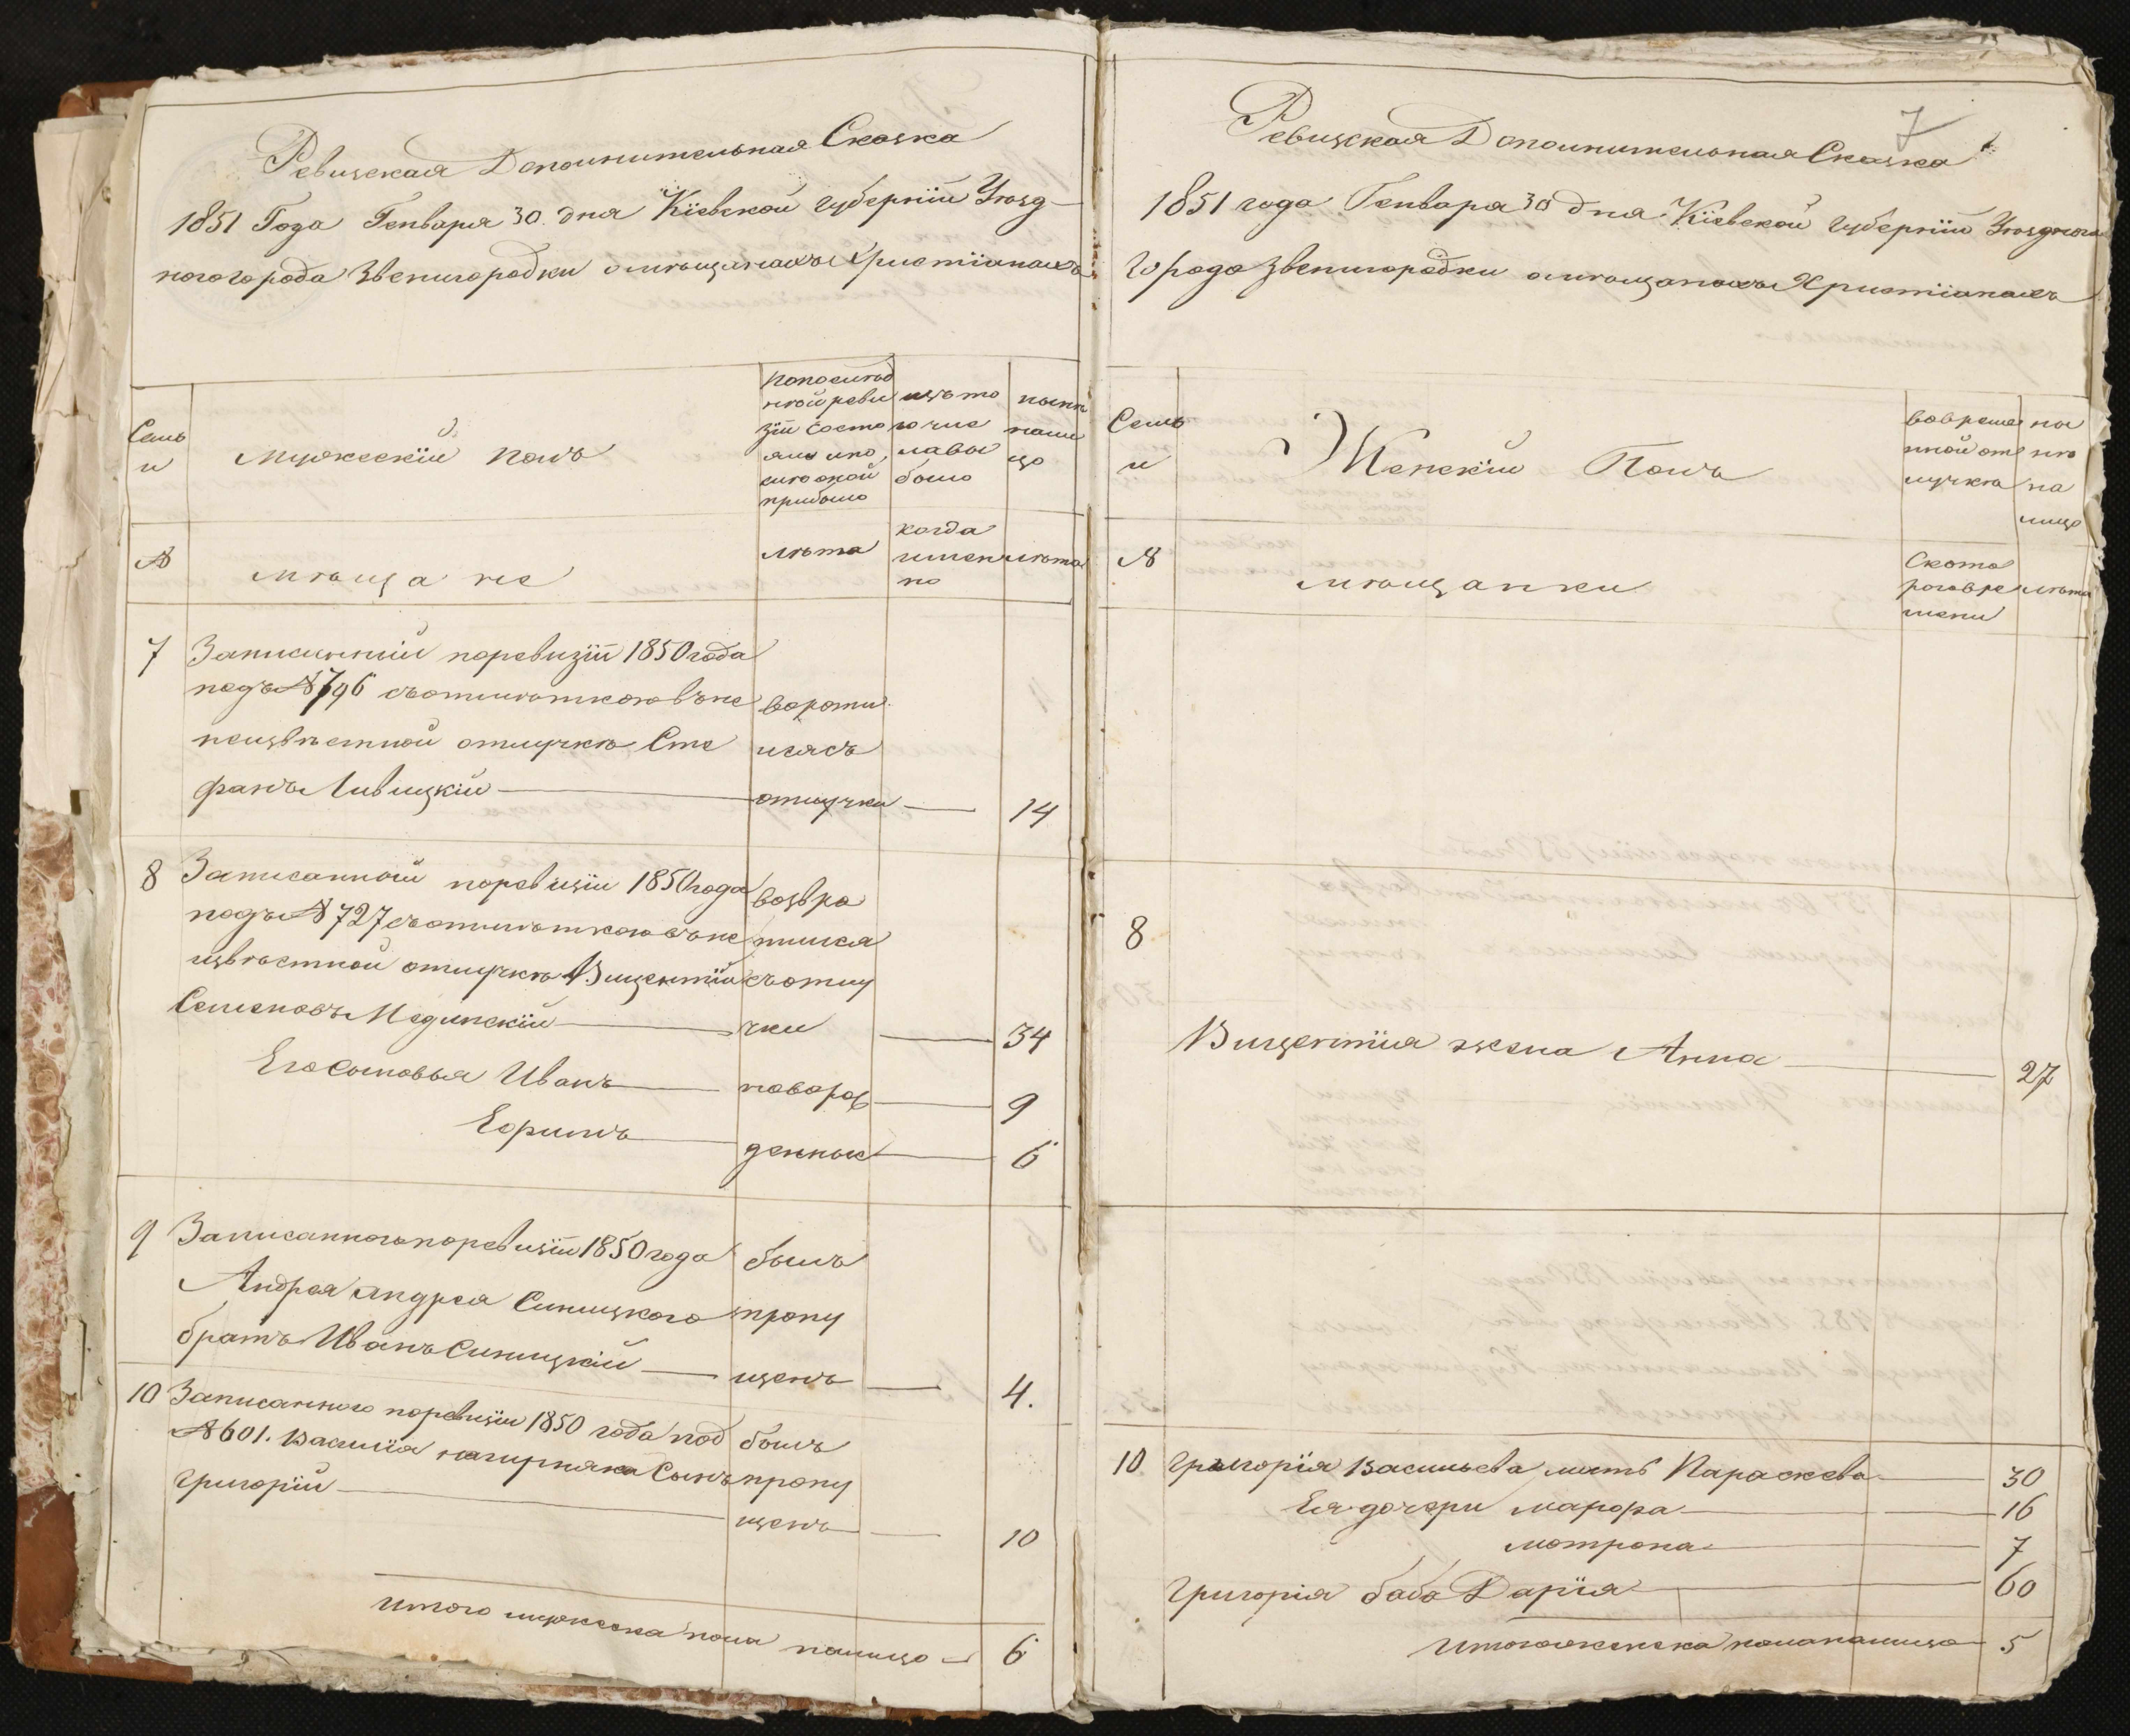 Ревизская Дополнительная Сказка
1851 Года Генваря 30 дня Кіевской губерніи Уѣзд
ного города Звенигородки о мѣщанахъ Христіанахъ
Семьи
Мужескій полъ
по послѣд
ней реви
зіи состо
яло и по
слѣ оной
прибыло
изъ то
го чис
ла вы
было
нынѣ
на ли
цо
№
мѣщане
лѣта
когда
имен
но
лѣта
7
Записанній по ревизіи 1850 года
подъ № 796 съ отмѣткою въ не
неизвѣстной отлучкѣ Сте
фанъ Ливицкій
вороти
лсясъ
отлучки
14
8
Записанной по ревизіи 1850 года
подъ № 727 съ отмѣткою въ не
извѣстной отлучкѣ Вицентій
Семеновъ Мединскій
возвра
тился
съ отлу
чки
34
Его сыновья Иванъ
новорож
9
Ефимъ
денные
6
9
Записанного по ревизіи 1850 года
Андрея Андрея Синицкого
братъ Иванъ Синицкій
былъ
пропу
щенъ
4.
10
Записанного по ревизіи 1850 года под
№ 601. Василія Нагирняка Сынъ
Григорій
былъ
пропу
щенъ
10
Итого мужеска пола налицо
6
7
Ревизская Дополнительная Сказка
1851 года Генваря 30 дня Кіевской губерніи Уѣздного
Города Звенигородки о мѣщанахъ Христіанахъ
Семьи
Женскій Полъ
во време
нной от
лучкѣ
ны
нѣ
на
лицо
№
мѣщанки
Ското
раго вре
мени
лѣта
8
Вицентія жена Анна
27
10
Григорія Васильева мать Параскева
30
Ея дочери Марфа
16
Мотрона
7
Григорія баба Дарія
60
Итого женска пола налицо
5